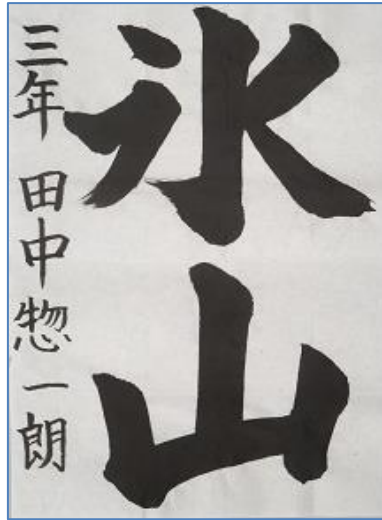 氷山
三年 田中惣一朗